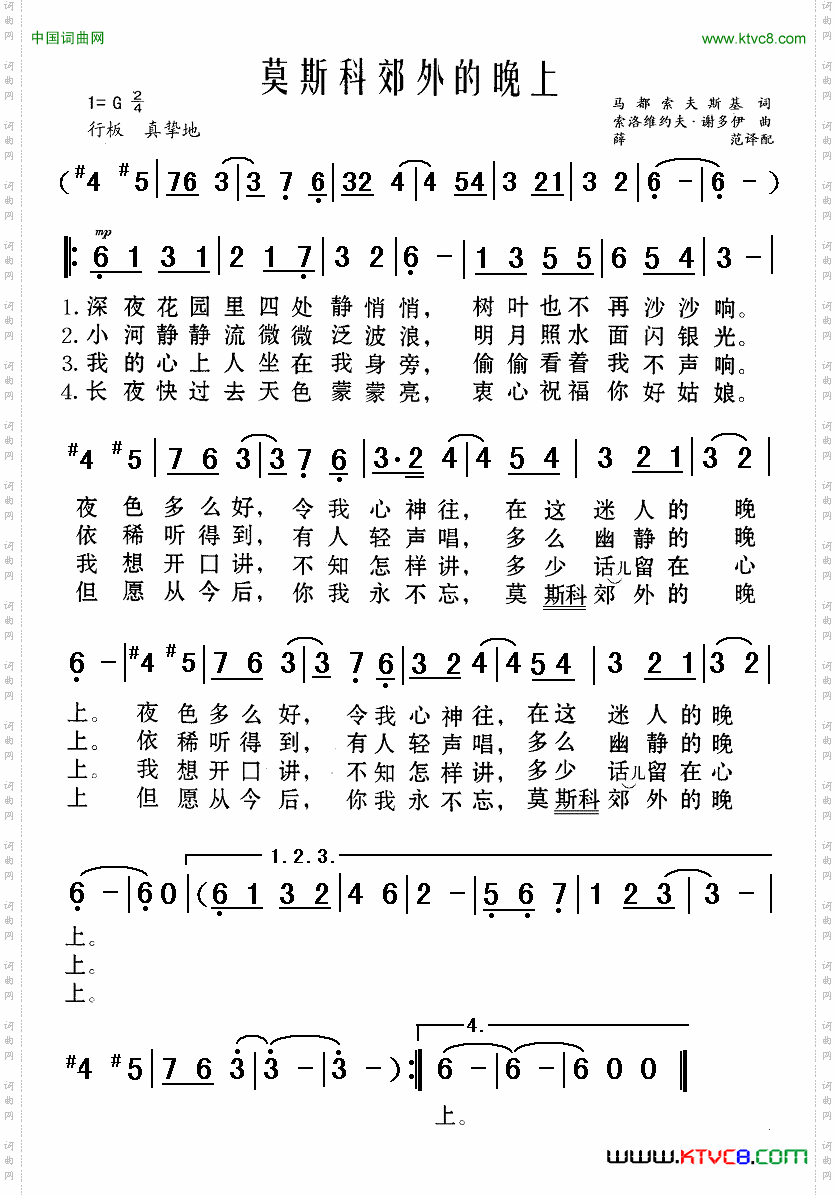 中国词曲网
www.ktvc8.com
莫斯科郊外的晚上
1= G 2/4
行板 真挚地
马都索夫斯基 词
索洛维约夫·谢多伊 曲
薛 范译配
( #4 #5 | 76 3 | 3 7 6 | 32 4 | 4 54 | 3 21 | 3 2 | 6 - | 6 - )
mp
‖: 6 1 3 1 | 2 1 7 | 3 2 | 6 - | 1 3 5 5 | 6 5 4 | 3 - |
1.深夜花园里四处静悄悄, 树叶也不再沙沙响。
2.小河静静流微微泛波浪, 明月照水面闪银光。
3.我的心上人坐在我身旁, 偷偷看着我不声响。
4.长夜快过去天色蒙蒙亮, 衷心祝福你好姑娘。
#4 #5 | 7 6 3 | 3 7 6 | 3· 2 4 | 4 5 4 | 3 2 1 | 3 2 |
夜色多么好, 令我心神往, 在这迷人的晚
依稀听得到, 有人轻声唱, 多么幽静的晚
我想开口讲, 不知怎样讲, 多少话儿留在心
但愿从今后, 你我永不忘, 莫斯科郊外的晚
6 - | #4 #5 | 7 6 3 | 3 7 6 | 3 2 4 | 4 5 4 | 3 2 1 | 3 2 |
上。 夜色多么好, 令我心神往, 在这迷人的晚
上。 依稀听得到, 有人轻声唱, 多么幽静的晚
上。 我想开口讲, 不知怎样讲, 多少话儿留在心
上 但愿从今后, 你我永不忘, 莫斯科郊外的晚
1.2.3.
6 - | 6 0 | ( 6 1 3 2 | 4 6 | 2 - | 5 6 7 | 1 2 3 | 3 - |
上。
上。
上。
4.
#4 #5 | 7 6 3 | 3 - | 3 - ) :‖ 6 - | 6 - | 6 0 0 ‖
上。
www.KTVC8.com